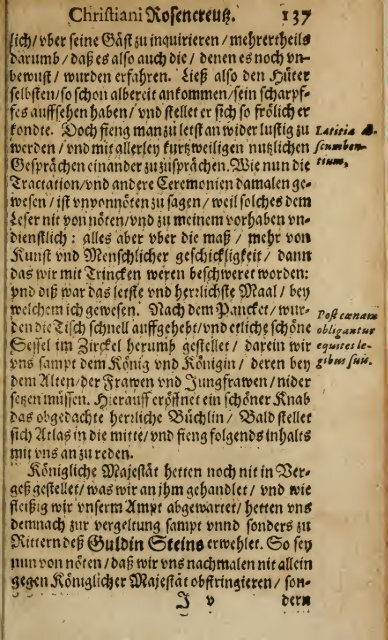 Christiani Rosencreutz. 137
lich/ vber seine Gäst zu inquirieren/ mehrertheils
darumb/ daß es also auch die/ denen es noch vn-
bewust/ wurden erfahren. Ließ also den Hüter
selbsten/ so schon albereit ankommen/ sein scharpf-
fes auffsehen haben/ vnd stellet er sich so frölich er
kondte. Doch fieng man zu letst an wider lustig zu
Lætitia di-
werden/ vnd mit allerley kurtzweiligen nutzlichen
scumben-
Gesprächen einander zu zusprächen. Wie nun die
tium,
Tractation/ vnd andere Ceremonien damalen ge-
wesen/ ist vnvonnöten zu sagen/ weil solches dem
Leser nit von nöten/ vnd zu meinem vorhaben vn-
dienstlich: alles aber vber die maß/ mehr von
Kunst vnd Menschlicher geschickligkeit/ dann
das wir mit Trincken weren beschweret worden:
vnd diß war das letste vnd herrlichste Maal/ bey
welchem ich gewesen. Nach dem Pancket/ wur-
Post cœnam
den die Tisch schnell auffgehebt/ vnd etliche schöne
obligantur
Sessel im Zirckel herumb gestellet/ darein wir
equites le-
vns sampt dem König vnd Königin/ deren bey
gibus suis.
dem Alten/ der Frawen vnd Jungfrawen/ nider
setzen müssen. Herauff eröffnet ein schöner Knab
das obgedachte herrliche Büchlin/ Bald stellet
sich Atlas in die mitte/ vnd fieng folgends inhalts
mit vns an zu reden.
Königliche Majestät hetten noch nit in Ver-
geß gestellet/ was wir an jhm gehandlet/ vnd wie
fleißig wir vnserm Ampt abgewartet/ hetten vns
demnach zur vergeltung sampt vnnd sonders zu
Rittern deß Guldin Steins erwehlet. So sey
nun von nöten/ daß wir vns nachmalen nit allein
gegen Königlicher Majestät obstringieren/ son-
J v dern